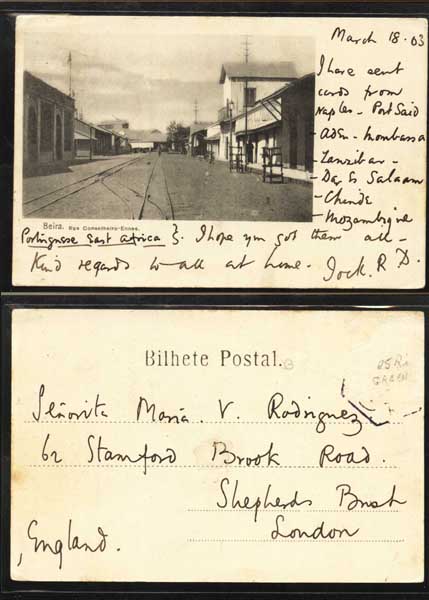 March 18. 03
I have sent
cards from
Naples - Port Said
- Aden - Mombassa
- Zanzibar -
- Dar Es Salaam
- Chinde
- Mozambique
Beira. Rua Conselheiro-Ennes.
Portuguese East Africa }. I hope you got them all -
Kind regards to all at home. Jock. R D.
Bilhete Postal.
25 Ri
GREEN
Señorita Maria. V. Rodriguez
62 Stamford Brook Road.
Shepherds Bush
London
England.